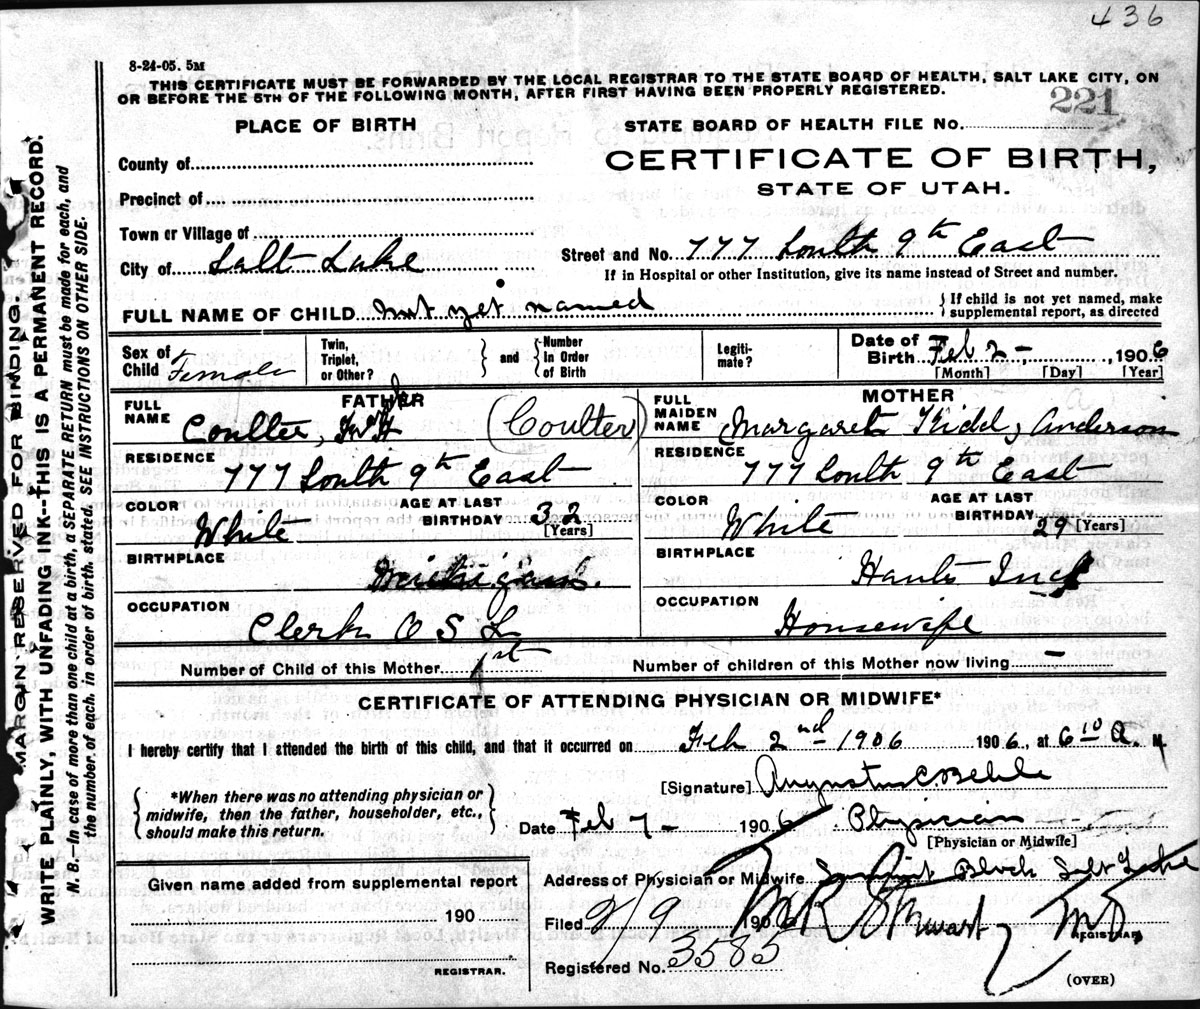 436
8-24-05. 5M
THIS CERTIFICATE MUST BE FORWARDED BY THE LOCAL REGISTRAR TO THE STATE BOARD OF HEALTH, SALT LAKE CITY, ON
OR BEFORE THE 5TH OF THE FOLLOWING MONTH, AFTER FIRST HAVING BEEN PROPERLY REGISTERED.
221
PLACE OF BIRTH
STATE BOARD OF HEALTH FILE No.
County of
CERTIFICATE OF BIRTH,
Precinct of
STATE OF UTAH.
Town or Village of
City of Salt Lake
Street and No. 777 South 9th East
If in Hospital or other Institution, give its name instead of Street and number.
FULL NAME OF CHILD not yet named
{If child is not yet named, make
supplemental report, as directed
Sex of Child Female
Twin, Triplet, or Other?
and
Number In Order of Birth
Legiti-mate?
Date of Birth Feb 2 -, 1906
[Month] [Day] [Year]
FATHER
FULL NAME Coulter, (Coulter)
MOTHER
FULL MAIDEN NAME Margaret Kidd, Anderson
RESIDENCE 777 South 9th East
RESIDENCE 777 South 9th East
COLOR White
AGE AT LAST BIRTHDAY 32 [Years]
COLOR White
AGE AT LAST BIRTHDAY 29 [Years]
BIRTHPLACE Michigan.
BIRTHPLACE Hants
OCCUPATION Clerk O S L
OCCUPATION Housewife
Number of Child of this Mother 1st
Number of children of this Mother now living -
CERTIFICATE OF ATTENDING PHYSICIAN OR MIDWIFE*
I hereby certify that I attended the birth of this child, and that it occurred on Feb 2nd 1906 1906, at 6 10 A. M
[Signature] Augustus C. Behle
{*When there was no attending physician or
midwife, then the father, householder, etc.,
should make this return.}
Date Feb 7 - 1906 Physician
[Physician or Midwife]
Given name added from supplemental report
190
REGISTRAR.
Address of Physician or Midwife Block Salt Lake
Filed 2/9 1906 Stewart, MD,
REGISTRAR,
Registered No. 3585
(OVER)
MARGIN RESERVED FOR BINDING.
WRITE PLAINLY, WITH UNFADING INK---THIS IS A PERMANENT RECORD.
N. B.--In case of more than one child at a birth, a SEPARATE RETURN must be made for each, and
the number of each, in order of birth, stated. SEE INSTRUCTIONS ON OTHER SIDE.